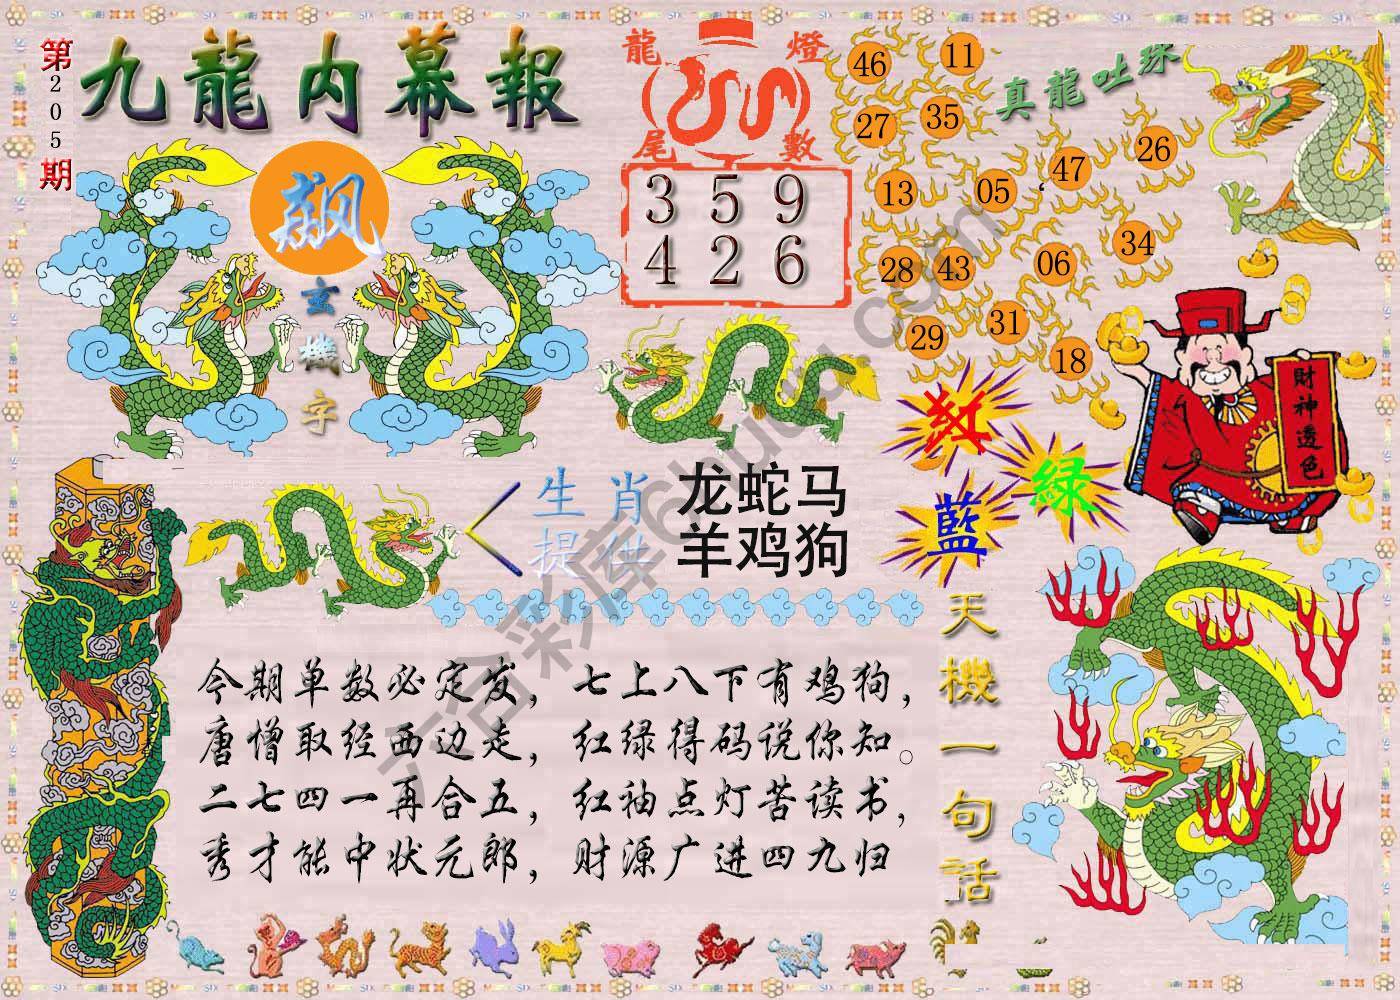 第205期
九龍内幕報
飙
玄機字
龍燈
尾數
3 5 9
4 2 6
真龍吐珠
46 11
27 35
13 05 47 26
28 43 06 34
29 31 18
財神透色
紅
綠
藍
生肖
提供
龙蛇马
羊鸡狗
天機一句話
今期单数必定发，七上八下有鸡狗，
唐憎取经西边走，红绿得码说你知。
二七四一再合五，红袖点灯苦读书，
秀才能中状元郎，财源广进四九归
六合彩库6huu.com